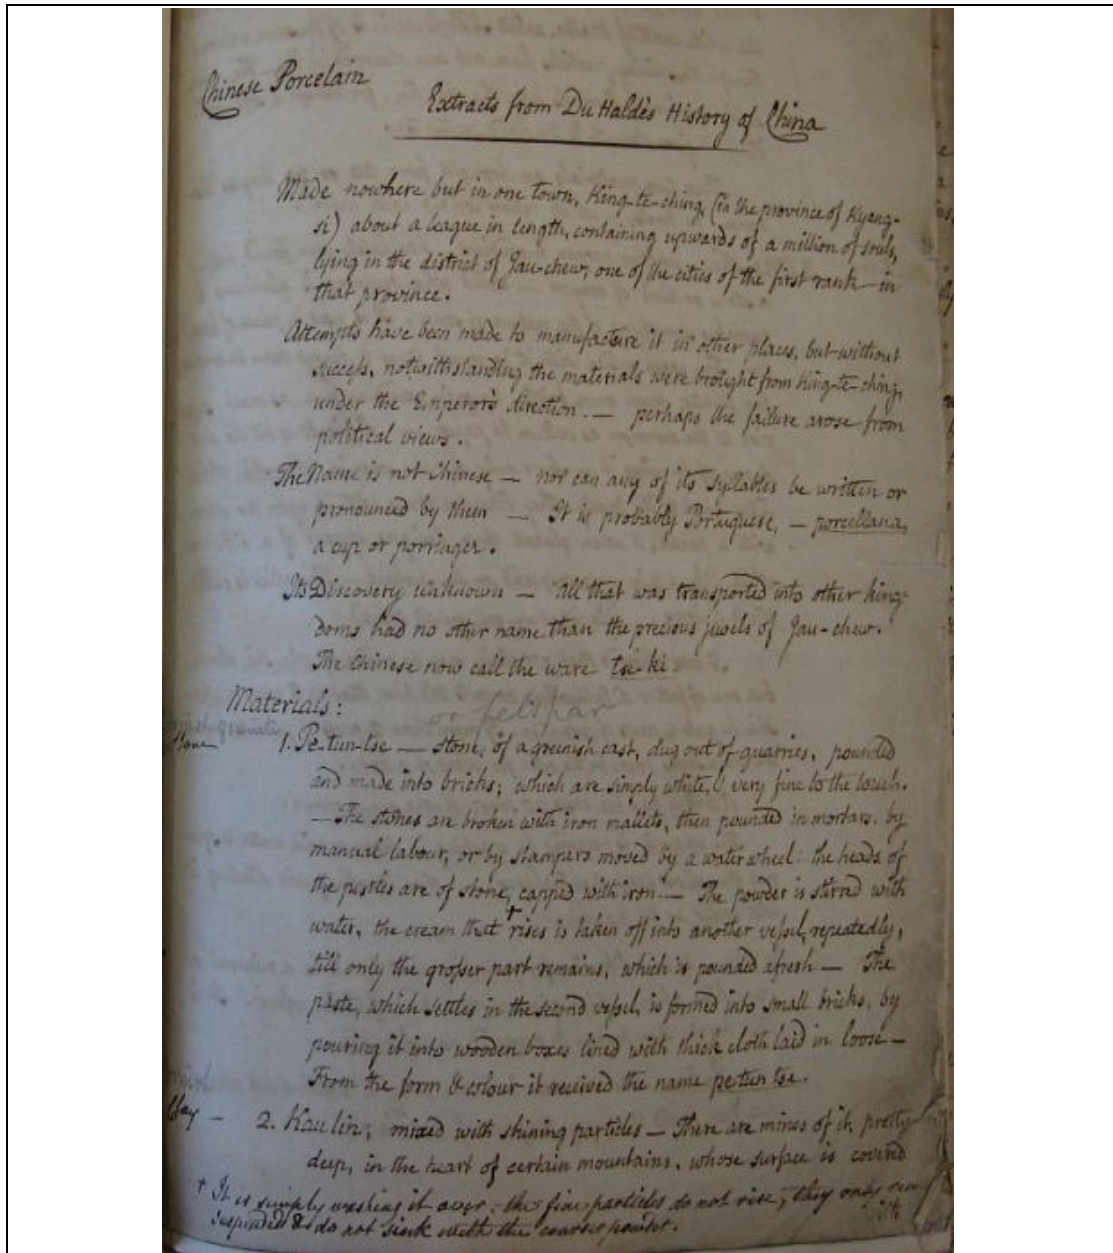 Chinese Porcelain
Extracts from Du Halde's History of China
Made nowhere but in one town, King-te-ching, (in the province of Kyang-
si) about a league in length, containing upwards of a million of souls,
lying in the district of Jau-chew, one of the cities of the first rank in
that province.
Attempts have been made to manufacture it in other places, but without
success, notwithstanding the materials were brought from King-te-ching,
under the Emperor's direction. — perhaps the failure arose from
political views.
The Name is not Chinese — nor can any of its syllables be written or
pronounced by them — It is probably Portuguese, — porcellana,
a cup or porringer.
Its Discovery unknown — all that was transported into other king-
doms had no other name than the precious jewels of Jau-chew.
The Chinese now call the ware tse-ki
Materials:
or felspar
Stone
1. Pe-tun-tse — stone, of a greenish cast, dug out of quarries, pounded
and made into bricks; which are simply white, & very fine to the touch.
— The stones are broken with iron mallets, then pounded in mortars, by
manual labour, or by stampers moved by a water wheel: the heads of
the pestles are of stone, capped with iron. — The powder is stirred with
water, the cream that † rises is taken off into another vessel, repeatedly,
till only the grosser part remains, which is pounded afresh — The
paste, which settles in the second vessel, is formed into small bricks, by
pouring it into wooden boxes lined with thick cloth laid in loose —
From the form & colour it received the name pe tun tse.
Clay —
2. Kau lin, mixed with shining particles — There are mines of it, pretty
deep, in the heart of certain mountains, whose surface is covered
† It is simply washing it over, the fine particles do not rise, they only
suspended & do not sink with the coarser powder.